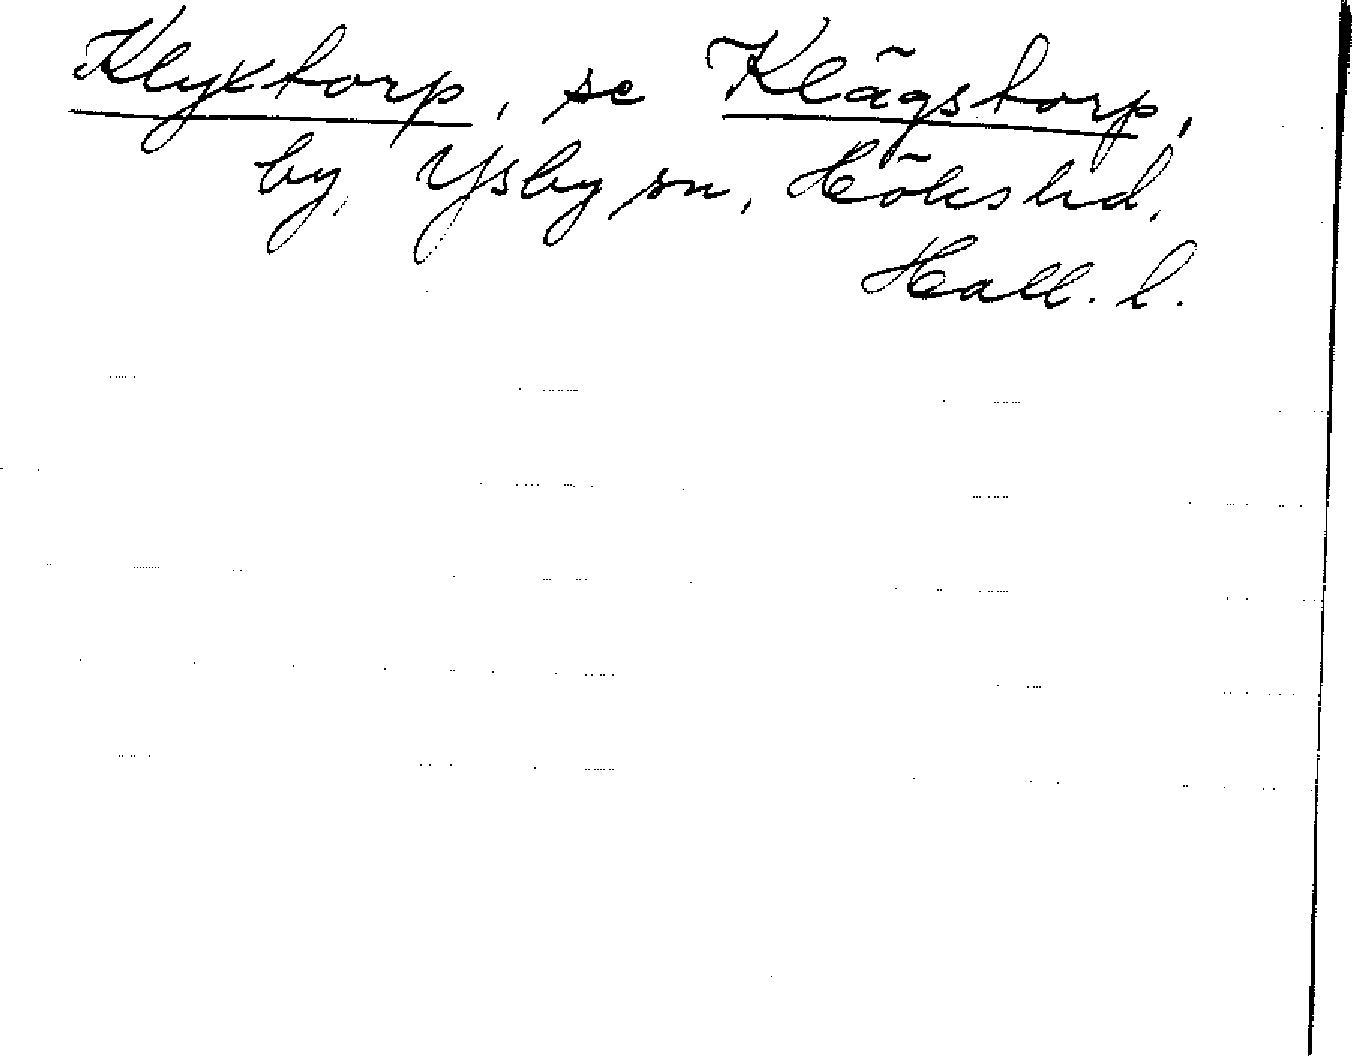 Klyxtorp, se Klägstorp,
by, Ysby sn, Höks hd.
Hall. l.